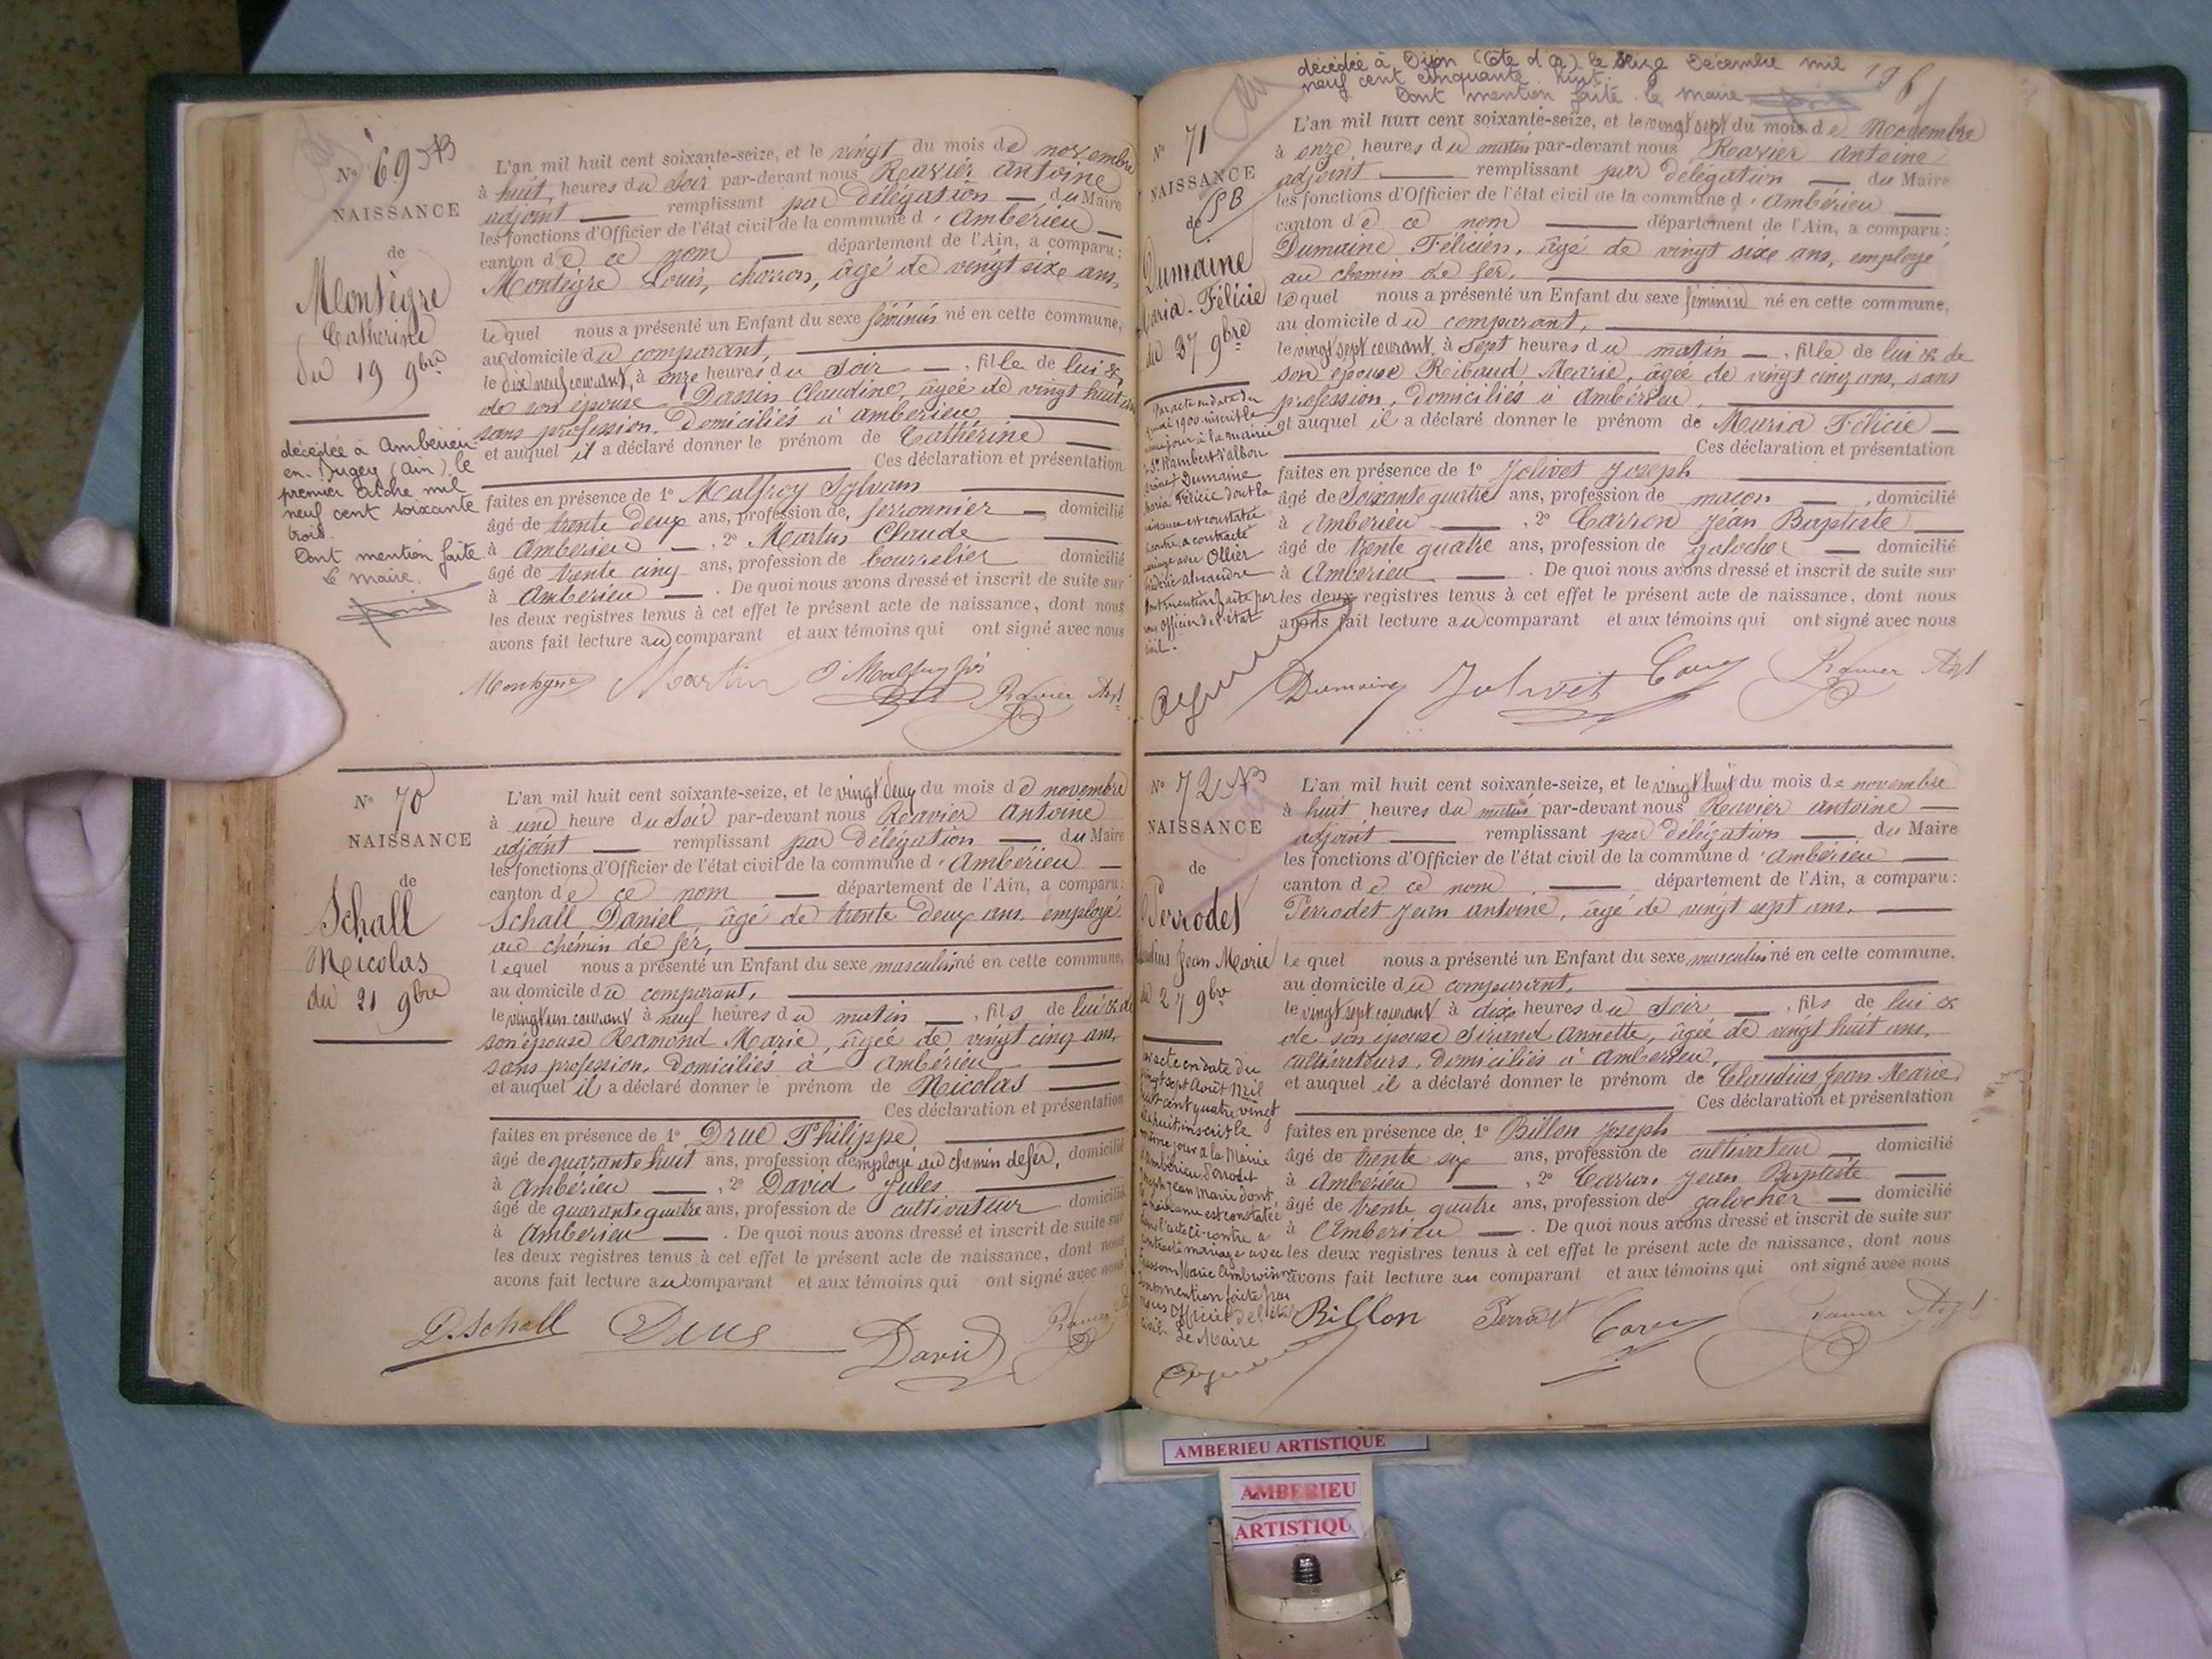 N° 69
NAISSANCE
de
Montègre
Catherine
du 19 9bre
décédée à Ambérieu
en-Bugey (Ain) le
premier Octobre mil
neuf cent soixante
trois.
Dont mention faite
Le Maire,
L'an mil huit cent soixante-seize, et le vingt du mois de novembre
à huit heures du soir par-devant nous Ravier Antoine
adjoint remplissant par délégation du Maire
les fonctions d'Officier de l'état civil de la commune d'Ambérieu
canton de ce nom département de l'Ain, a comparu:
Montègre Louis, charron, âgé de vingt sixe ans,
lequel nous a présenté un Enfant du sexe féminin né en cette commune,
au domicile du comparant,
le dix neuf courant, à onze heures du soir, fille de lui &
de son épouse Dassin Claudine, âgée de vingt huit ans
sans profession, domiciliés à Ambérieu
et auquel il a déclaré donner le prénom de Cathérine
Ces déclaration et présentation
faites en présence de 1° Malfroy Sylvain
âgé de trente deux ans, profession de ferronnier, domicilié
à Ambérieu, 2° Martin Claude
âgé de trente cinq ans, profession de bourrelier domicilié
à Ambérieu. De quoi nous avons dressé et inscrit de suite sur
les deux registres tenus à cet effet le présent acte de naissance, dont nous
avons fait lecture au comparant et aux témoins qui ont signé avec nous
Montègre Martin Malfroy fils Ravier Adjt
N° 70
NAISSANCE
de
Schall
Nicolas
du 21 9bre
L'an mil huit cent soixante-seize, et le vingt deux du mois de novembre
à une heure du soir par-devant nous Ravier Antoine
adjoint remplissant par délégation du Maire
les fonctions d'Officier de l'état civil de la commune d'Ambérieu
canton de ce nom département de l'Ain, a comparu:
Schall Daniel âgé de trente deux ans employé
au chemin de fer,
lequel nous a présenté un Enfant du sexe masculin né en cette commune,
au domicile du comparant,
le vingt un courant à neuf heures du matin, fils de lui & de
son épouse Ramond Marie, âgée de vingt cinq ans,
sans profession, domiciliés à Ambérieu
et auquel il a déclaré donner le prénom de Nicolas
Ces déclaration et présentation
faites en présence de 1° Druc Philippe
âgé de quarante huit ans, profession d'employé au chemin de fer, domicilié
à Ambérieu, 2° David Jules
âgé de quarante quatre ans, profession de cultivateur domicilié
à Ambérieu. De quoi nous avons dressé et inscrit de suite sur
les deux registres tenus à cet effet le présent acte de naissance, dont nous
avons fait lecture au comparant et aux témoins qui ont signé avec nous
D. Schall Druc David Ravier
décédée à Dijon (Côte d'Or) le seize Décembre mil
neuf cent cinquante huit.
Dont mention faite le maire
N° 71
NAISSANCE
de
Dumaine
Maria-Félicie
du 27 9bre
Par acte en date du
mai 1900 inscrit le
même jour à la mairie
St Rambert d'albon
Dumaine
Maria Félicie dont la
naissance est constatée
ci contre, a contracté
mariage avec Ollier
alexandre
Dont mention faite par
nous Officier de l'état
civil.
L'an mil huit cent soixante-seize, et le vingt sept du mois de Novembre
à onze heures du matin par-devant nous Ravier Antoine
adjoint remplissant par délégation du Maire
les fonctions d'Officier de l'état civil de la commune d'Ambérieu
canton de ce nom département de l'Ain, a comparu:
Dumaine Félicien, âgé de vingt sixe ans, employé
au chemin de fer,
lequel nous a présenté un Enfant du sexe féminin né en cette commune,
au domicile du comparant,
le vingt sept courant, à sept heures du matin, fille de lui & de
son épouse Ribaud Marie, âgée de vingt cinq ans, sans
profession, domiciliés à Ambérieu,
et auquel il a déclaré donner le prénom de Maria Félicie
Ces déclaration et présentation
faites en présence de 1° Jolivet Joseph
âgé de soixante quatre ans, profession de maçon, domicilié
à Ambérieu, 2° Carron Jean Baptiste
âgé de trente quatre ans, profession de galocher domicilié
à Ambérieu. De quoi nous avons dressé et inscrit de suite sur
les deux registres tenus à cet effet le présent acte de naissance, dont nous
avons fait lecture au comparant et aux témoins qui ont signé avec nous
Dumaine Jolivet Ravier Adjt
N° 72
NAISSANCE
de
Perrodet
Claudius Jean Marie
du 27 9bre
acte en date du
vingt sept Août mil
huit cent quatre vingt
dix huit, inscrit le
même jour à la Mairie
d'Ambérieu, Perrodet
Jean Marie dont
la naissance est constatée
dans l'acte ci-contre a
contracté mariage avec
Marie Ambroisine
Dont mention faite par
nous Officier de l'état
civil. Le Maire
L'an mil huit cent soixante-seize, et le vingt huit du mois de novembre
à huit heures du matin par-devant nous Ravier antoine
adjoint remplissant par délégation du Maire
les fonctions d'Officier de l'état civil de la commune d'Ambérieu
canton de ce nom département de l'Ain, a comparu:
Perrodet Jean antoine, âgé de vingt sept ans,
Lequel nous a présenté un Enfant du sexe masculin né en cette commune,
au domicile du comparant,
le vingt sept courant à dix heures du soir, fils de lui &
de son épouse Sirand Annette, âgée de vingt huit ans,
cultivateurs, domiciliés à Ambérieu,
et auquel il a déclaré donner le prénom de Claudius Jean Marie
Ces déclaration et présentation
faites en présence de 1° Billon Joseph
âgé de trente six ans, profession de cultivateur domicilié
à Ambérieu, 2° Carron Jean Baptiste
âgé de trente quatre ans, profession de galocher domicilié
à Ambérieu. De quoi nous avons dressé et inscrit de suite sur
les deux registres tenus à cet effet le présent acte de naissance, dont nous
avons fait lecture au comparant et aux témoins qui ont signé avec nous
Billon Perrodet Ravier Adjt
AMBERIEU ARTISTIQUE
AMBERIEU
ARTISTIQU